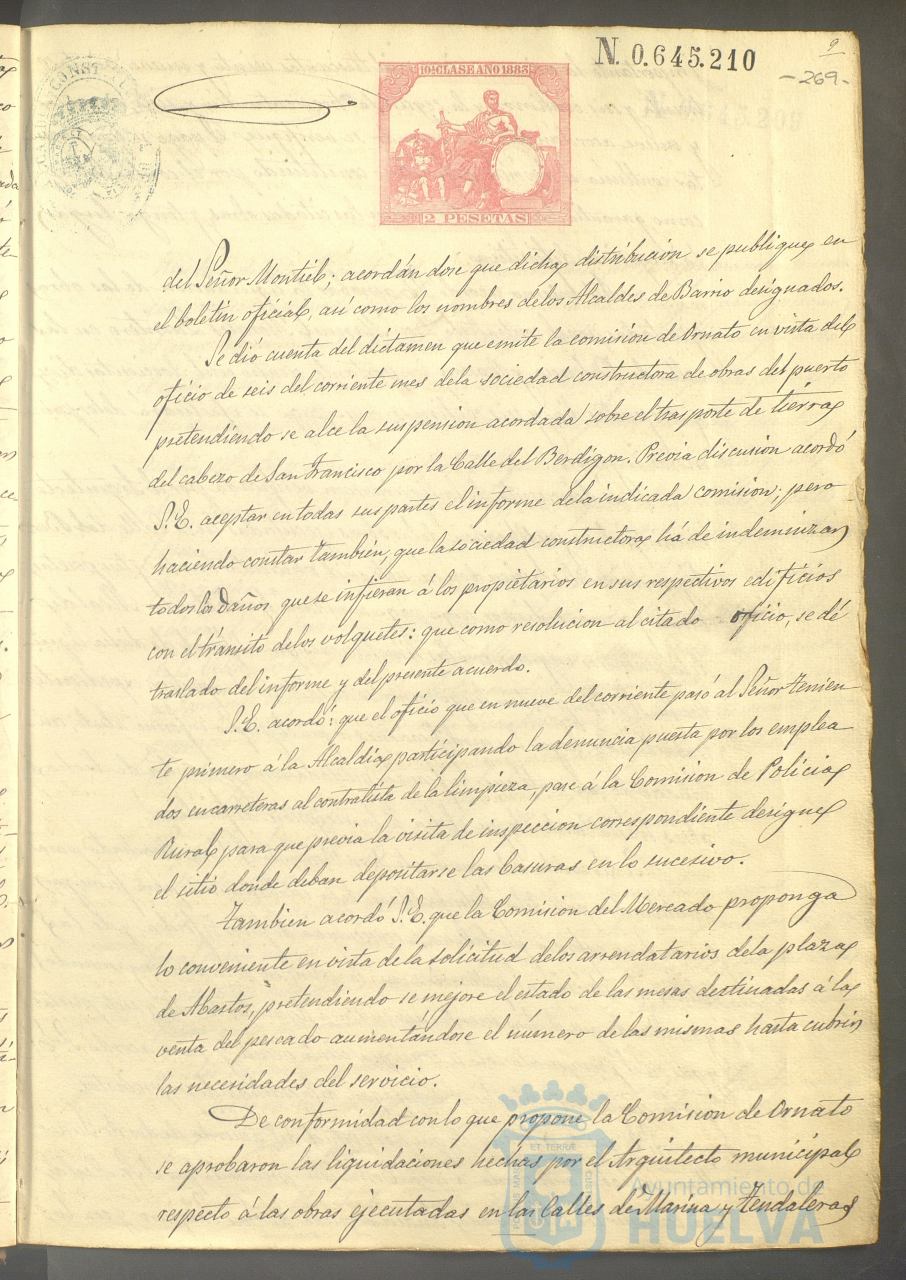 N. 0.645.210
2
-269-
CONST
10ª CLASE AÑO 1883
2 PESETAS
del Señor Montiel; acordándose que dicha distribución se publique en
el boletin oficial, asi como los nombres delos Alcaldes de Barrio designados.
Se dió cuenta del dictamen que emite la comision de Ornato en vista del
oficio de seis del corriente mes dela sociedad constructora de obras del puerto
pretendiendo se alce la suspension acordada sobre el trasporte de tierra
del cabezo de San Francisco por la Calle del Berdigon. Previa discusion acordó
S.E. aceptar en todas sus partes el informe dela indicada comision; pero
haciendo constar tambien, que la sociedad constructora há de indemnizar
todos los daños que se infieran á los propietarios en sus respectivos edificios
con el tránsito delos volquetes: que como resolucion al citado oficio, se dé
traslado del informe y del presente acuerdo.
S.E. acordó: que el oficio que en nueve del corriente pasó al Señor tenien
te primero á la Alcaldia participando la denuncia puesta por los emplea
dos en carreteras al contratista de la limpieza, pase á la Comision de Policia
Rural para que previa la visita de inspeccion correspondiente designe
el sitio donde deban depositarse las basuras en lo sucesivo.
Tambien acordó S.E. que la Comision del Mercado proponga
lo conveniente en vista de la solicitud delos arrendatarios dela plaza
de Abastos, pretendiendo se mejore el estado de las mesas destinadas á la
venta del pescado aumentándose el número de las mismas hasta cubrir
las necesidades del servicio.
De conformidad con lo que propone la Comision de Ornato
se aprobaron las liquidaciones hechas por el Arquitecto municipal
respecto á las obras ejecutadas en las Calles de Marina y Tendaleras
ET TERRÆ
Ayuntamiento de
HUELVA